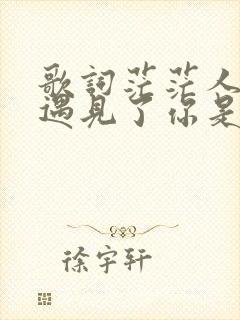 歌詞茫茫人
遇見了你是
徐宇軒